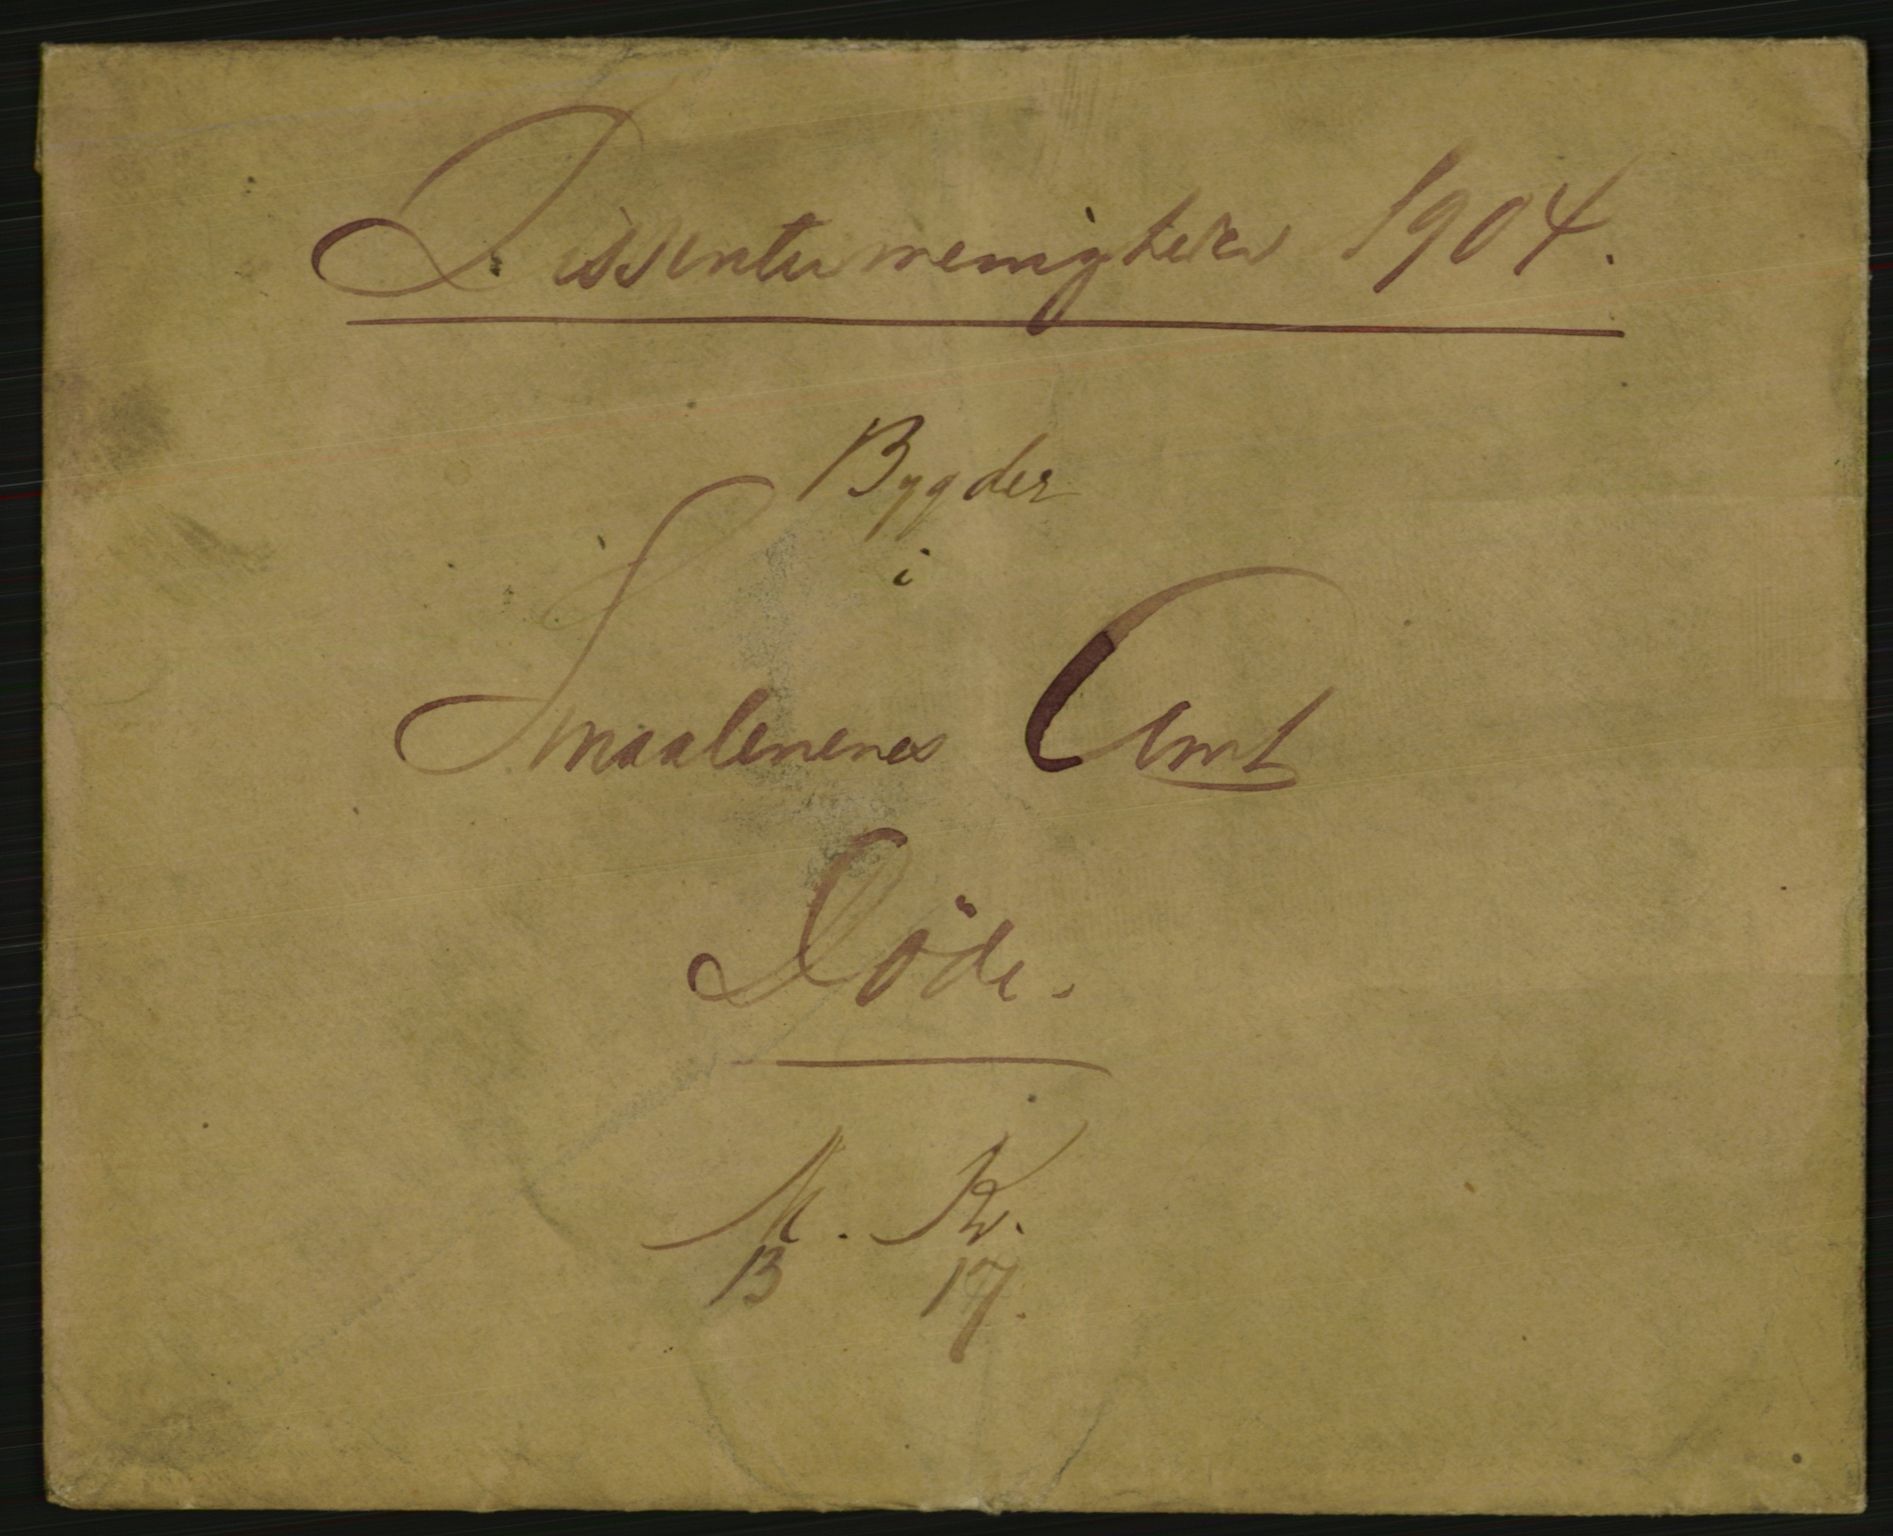 Dissentermenigheder 1904.
Bygder
i
Smaalenenes Amt
Döde.
M. Kv.
13 17.